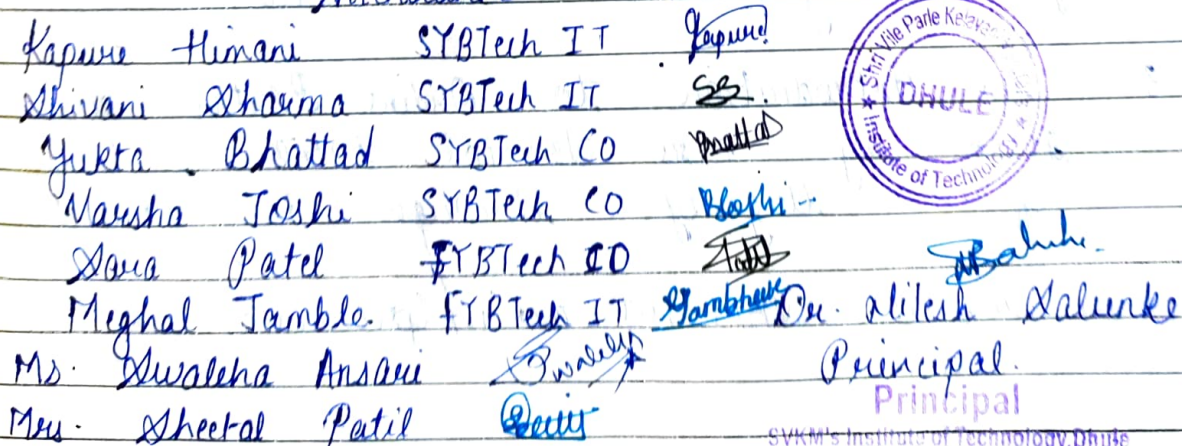 Kapure Himani SYBTech IT Kapure
Shivani Sharma SYBTech IT SS.
Yukta Bhattad SYBTech CO Bhattad
Varsha Joshi SYBTech CO
Sara Patel FYBTech CO
Meghal Jamble. FYBTech IT
Ms. Swaleha Ansari
Mrs. Sheetal Patil
Shri Vile Parle Kelavani
DHULE
Institute of Technology
Dr. Nilesh Salunke
Principal.
Principal
SVKM's Institute of Technology, Dhule